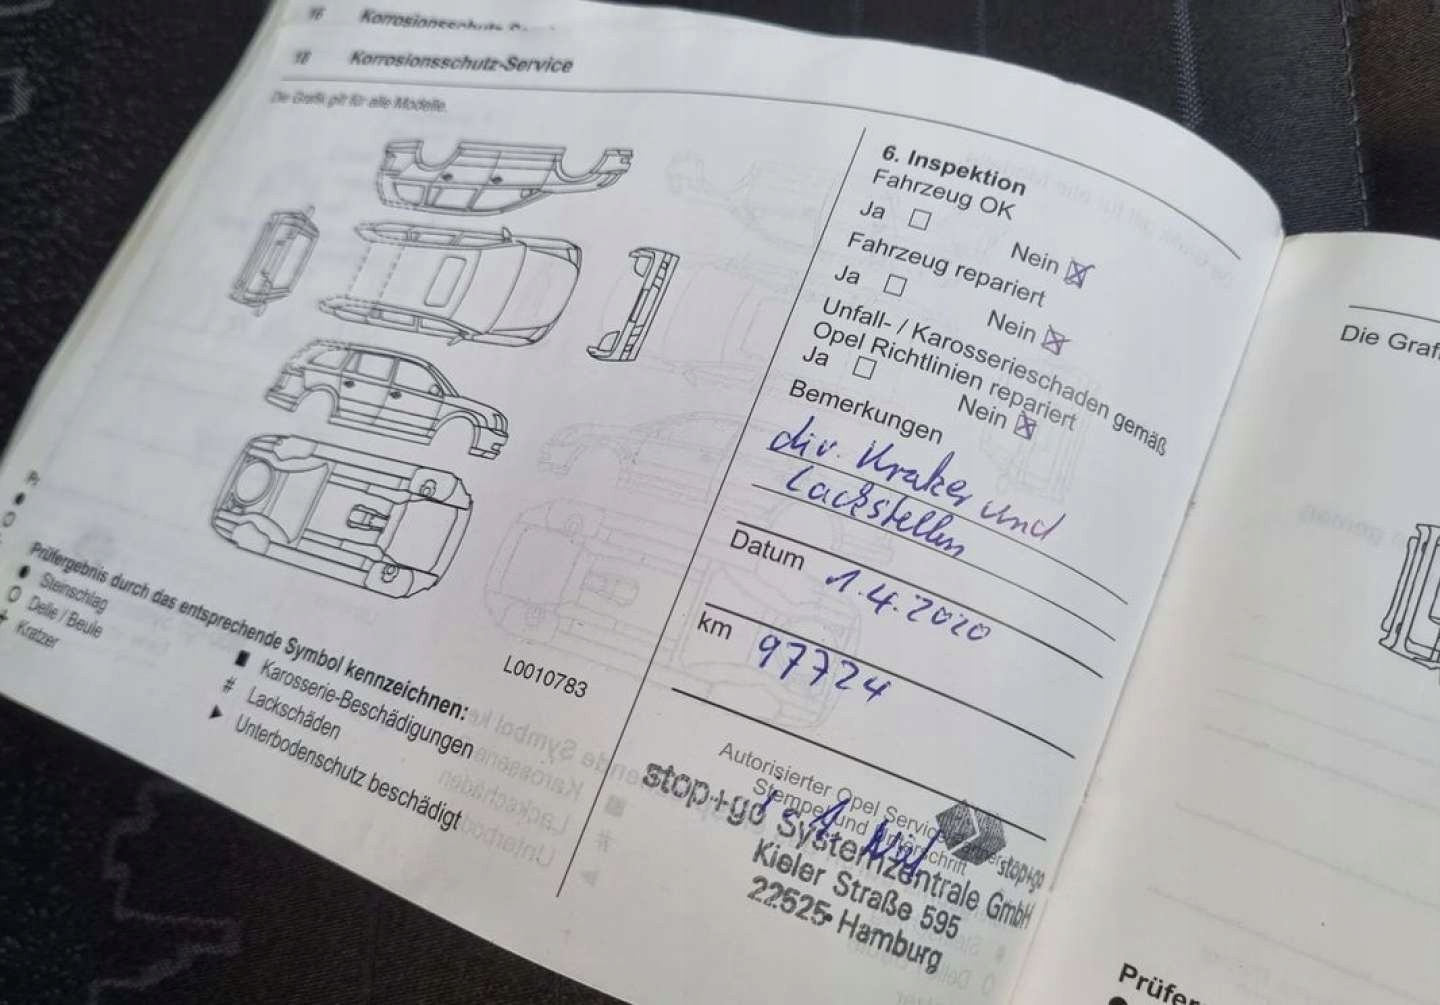 16 Korrosionsschutz-Se
18 Korrosionsschutz-Service
Die Grafik gilt für alle Modelle.
6. Inspektion
Fahrzeug OK
Ja Nein
Fahrzeug repariert
Ja Nein
Unfall- / Karosserieschaden gemäß
Opel Richtlinien repariert
Ja Nein
Bemerkungen
div. Kratzer und
Lackstellen
Datum 1.4.2020
km 97724
Autorisierter Opel Service Partner
Stempel und Unterschrift
stop+go
stop+go Systemzentrale GmbH
Kieler Straße 595
22525 Hamburg
L0010783
Pr
Prüfergebnis durch das entsprechende Symbol kennzeichnen:
Steinschlag
Delle / Beule
Kratzer
Karosserie-Beschädigungen
# Lackschäden
Unterbodenschutz beschädigt
Die Grafi
Prüfer